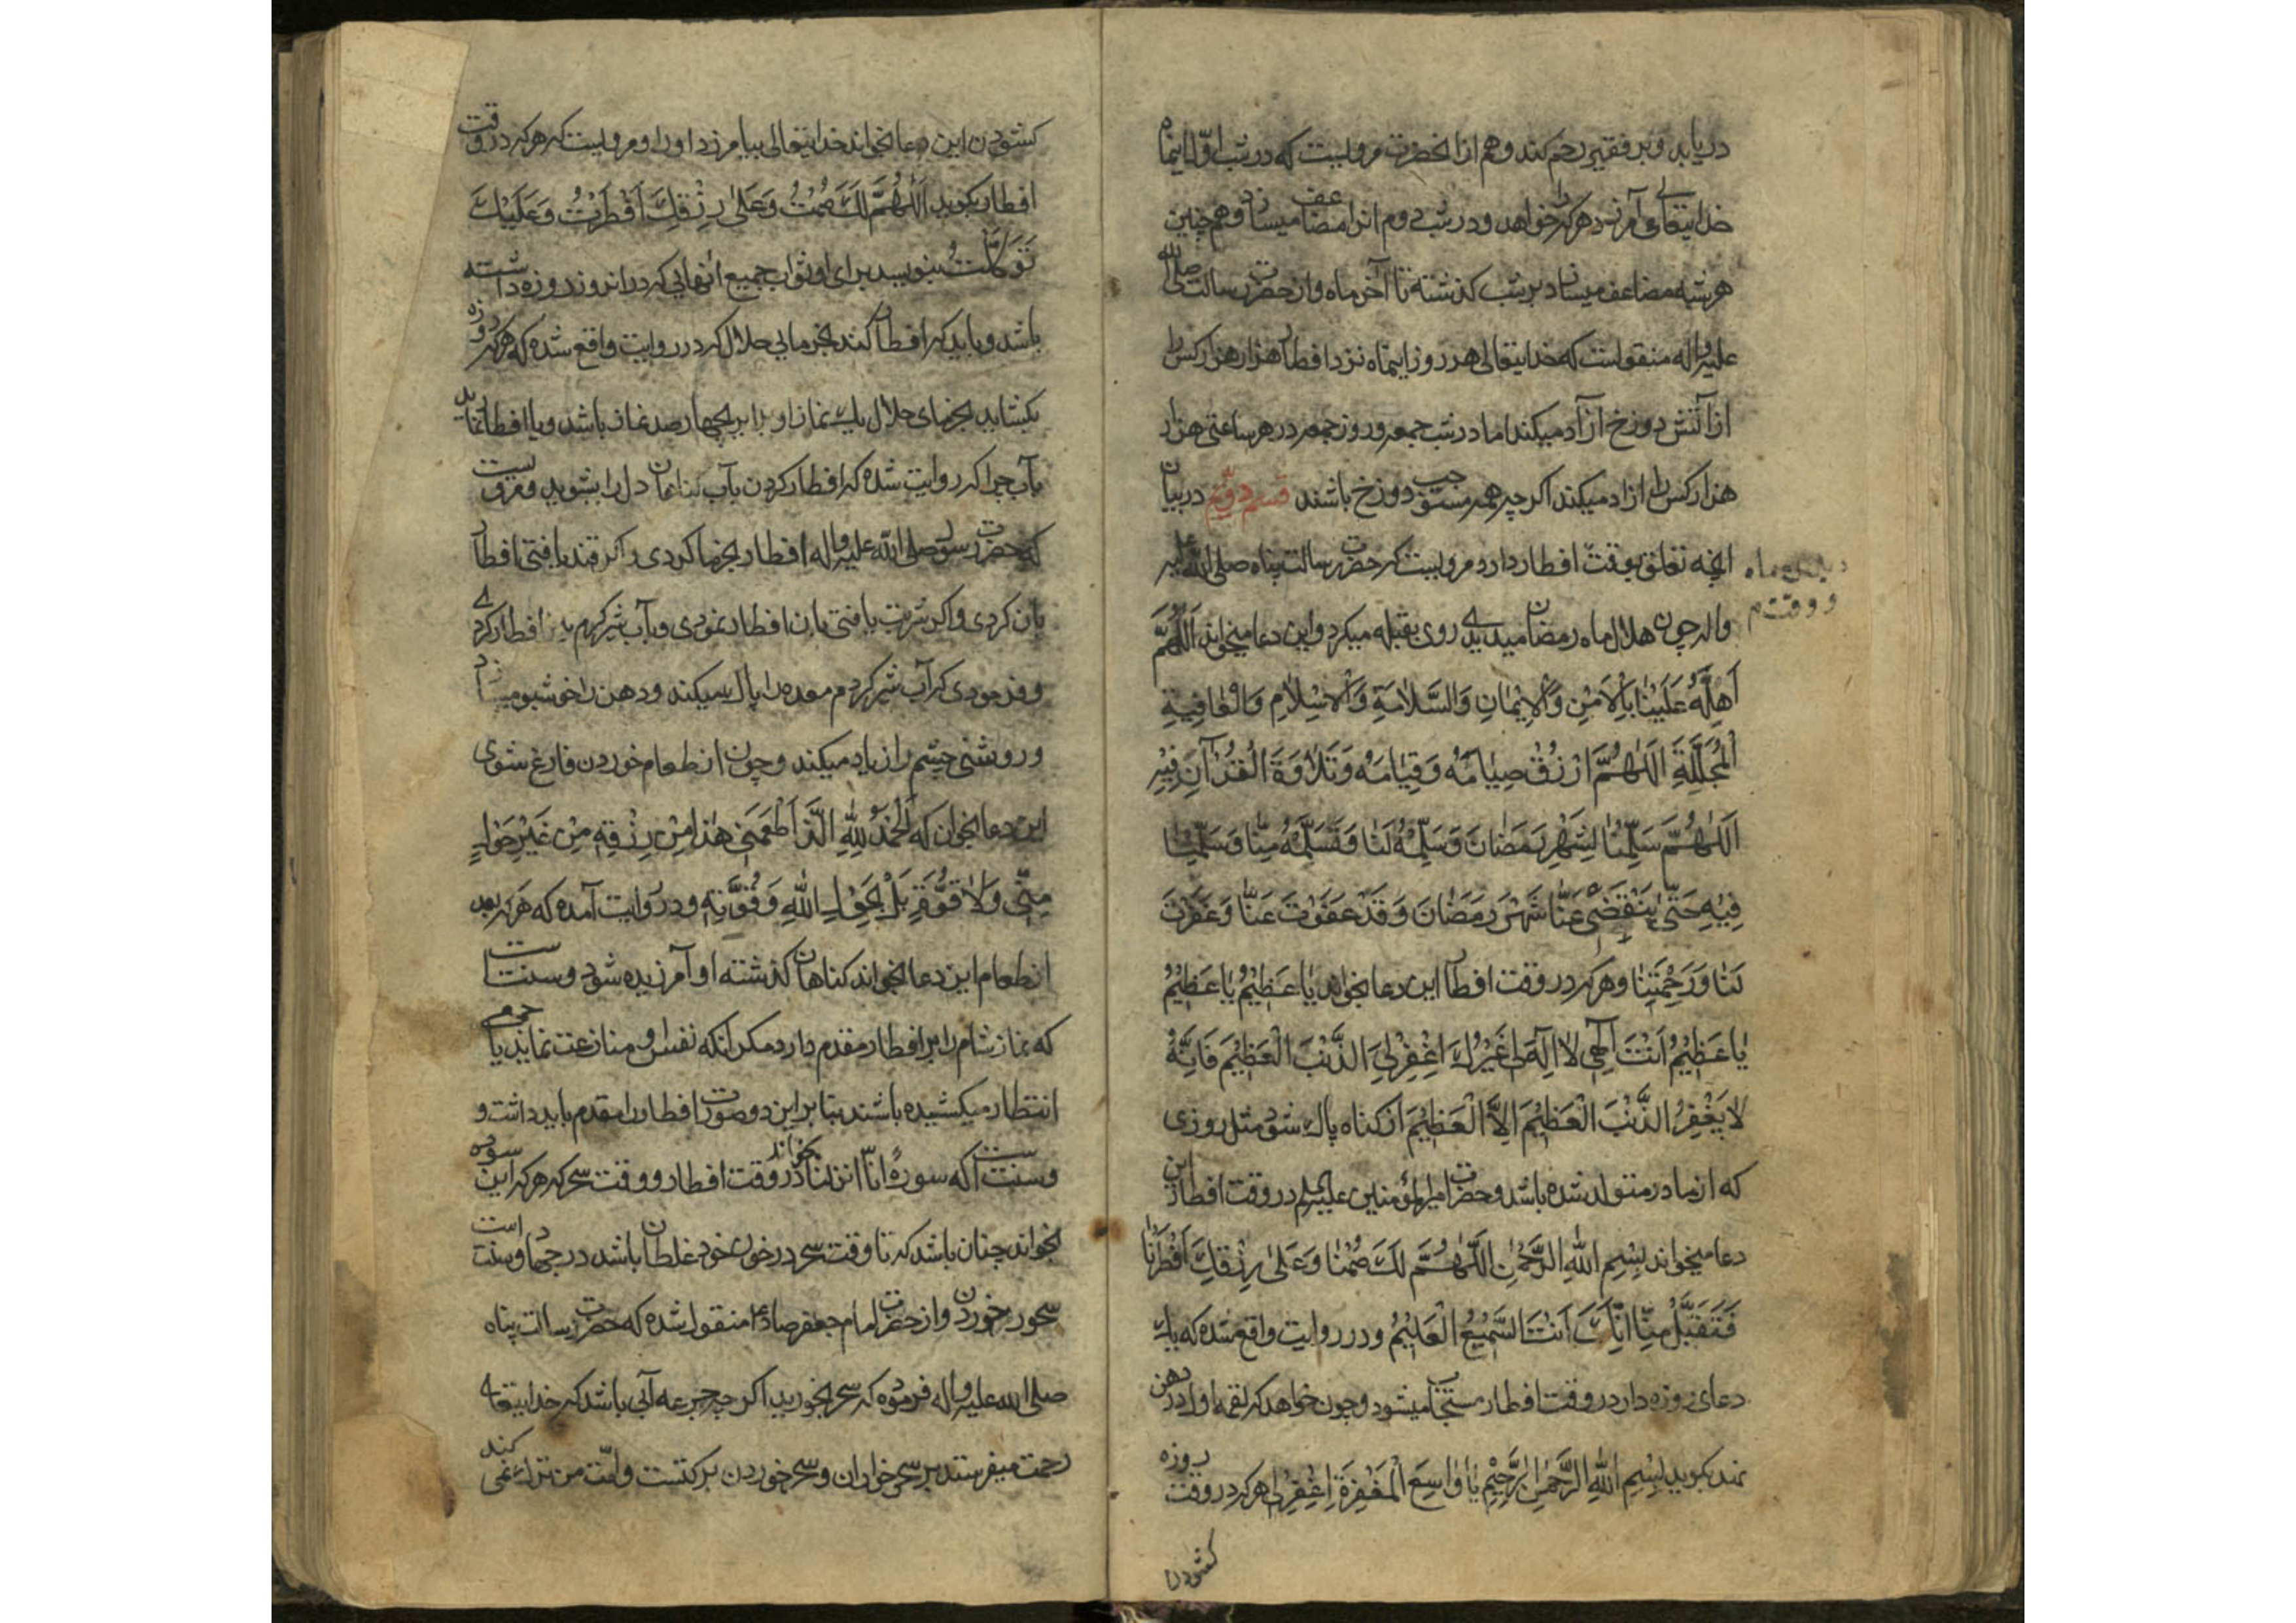 دریابد و بر فقیر رحم کند و هم از آنحضرت مرویست که در شب اول اینماه
خدایتعالی می آمرزد هر کرا خواهد و در شب دوم انرا مضاعف میسازد و همچنین
هر شبه مضاعف میسازد بر شب کذشته تا آخر ماه و از حضرت رسالت صلی الله
علیه و اله منقولست که خدایتعالی هر روز اینماه نزد افطار هزار هزار کس را
از آتش دوزخ آزاد میکند اما در شب جمعه و روز جمعه در هر ساعتی هزار
هزار کس را ازاد میکند اکرچه همه مستوجب دوزخ باشند قسم دوّیم در بیان
انچه تعلق بوقت افطار دارد مرویست که حضرت رسالت پناه صلی الله علیه
واله چون هلال ماه رمضان میدیدی روی بقبله میکرد و این دعا میخواند اَللّهُمَّ
اَهِلَّهُ عَلَیْنا بِالْاَمْنِ وَالْاِیْمانِ وَالسَّلامَةِ وَالْاِسْلامِ وَالْعافِیَةِ
الْمُجَلَّلَةِ اَللّهُمَّ ارْزُقْ صِیامَهُ وَقِیامَهُ وَتَلاوَةَ الْقُرْآنِ فِیْهِ
اَللّهُمَّ سَلِّمْنا لِشَهْرِ رَمَضانَ وَسَلِّمْهُ لَنا وَتَسَلَّمْهُ مِنّا وَسَلِّمْنا
فِیْهِ حَتّی یَنْقَضِیَ عَنّا شَهْرُ رَمَضانَ وَقَدْ عَفَوْتَ عَنّا وَغَفَرْتَ
لَنا وَرَحِمْتَنا و هر که در وقت افطار این دعا بخواند یا عَظِیْمُ یا عَظِیْمُ
یا عَظِیْمُ اَنْتَ اِلهِی لا اِلهَ لِی غَیْرُكَ اِغْفِرْلِیَ الذَّنْبَ الْعَظِیْمَ فَاِنَّهُ
لا یَغْفِرُ الذَّنْبَ الْعَظِیْمَ اِلَّا الْعَظِیْمُ از کناه پاك شود مثل روزی
که از مادر متولد شده باشد و حضرت امیرالمؤمنین علیه السلم در وقت افطار این
دعا میخواند بِسْمِ اللهِ الرَّحْمنِ اَللّهُمَّ لَكَ صُمْنا وَعَلی رِزْقِكَ اَفْطَرْنا
فَتَقَبَّلْ مِنّا اِنَّكَ اَنْتَ السَّمِیْعُ الْعَلِیْمُ و در روایت واقع شده که یك
دعای روزه دار در وقت افطار مستجاب میشود و چون خواهد که لقمه اول در دهن
نهد بکوید بِسْمِ اللهِ الرَّحْمنِ الرَّحِیْمِ یا واسِعَ الْمَغْفِرَةِ اِغْفِرْلِی هر که در وقت روزه
کشودن
کشودن این دعا بخواند خدایتعالی بیامرزد او را و مرویست که هر که در وقت
افطار بکوید اَللّهُمَّ لَكَ صُمْتُ وَعَلی رِزْقِكَ اَفْطَرْتُ وَعَلَیْكَ
تَوَکَّلْتُ بنویسد برای او ثواب جمیع انهایی که در انروز روزه داشته
باشد و باید که افطار کند بخرمایی حلال که در روایت واقع شده که هر که روزه
بکشاید بخرمای حلال یك نماز او برابر بچهار صد نماز باشد و یا افطار نماید
بآب چرا که روایت شده که افطار کردن بآب کناهان دل را بشوید و مرویست
که حضرت رسول صلی الله علیه واله افطار بخرما کردی و اکر قند یافتی افطار
بان کردی و اکر شربت یافتی بان افطار نمودی و بآب شیر کرم نیز افطار کردی
و فرمودی که آب شیر کرم معده را پاك میکند و دهن را خوشبو میسازد
و روشنی چشم را زیاد میکند و چون از طعام خوردن فارغ شوی
این دعا بخوان که اَلْحَمْدُ لِلّهِ الَّذِی اَطْعَمَنِی هذا مِنْ رِزْقِهِ مِنْ غَیْرِ حَوْلٍ
مِنِّی وَلا قُوَّةٍ بَلْ بِحَوْلِ اللهِ وَقُوَّتِهِ و در روایت آمده که هر که بعد
از طعام این دعا بخواند کناهان کذشته او آمرزیده شود و سنت است
که نماز شام را بر افطار مقدم دارد مکر انکه نفس او منازعت نماید یا جمعی
انتظار میکشیده باشند بنا بر این دو صورت افطار را مقدم باید داشت و
و سنت است که سورهٔ انّا انزلنا بخواند در وقت افطار و وقت سحر که هر که این سوره
بخواند چنان باشد که تا وقت سحر در خون خود غلطان باشد در جهاد و سنت است
سحور خوردن و از حضرت امام جعفر صادق منقول شده که حضرت رسالت پناه
صلی الله علیه واله فرموده که سحر بخورید اکر چه جرعه آبی باشد که خدایتعالی
رحمت میفرستد بر سحر خواران و سحر خوردن برکتست و امّت من ترك نمی کند